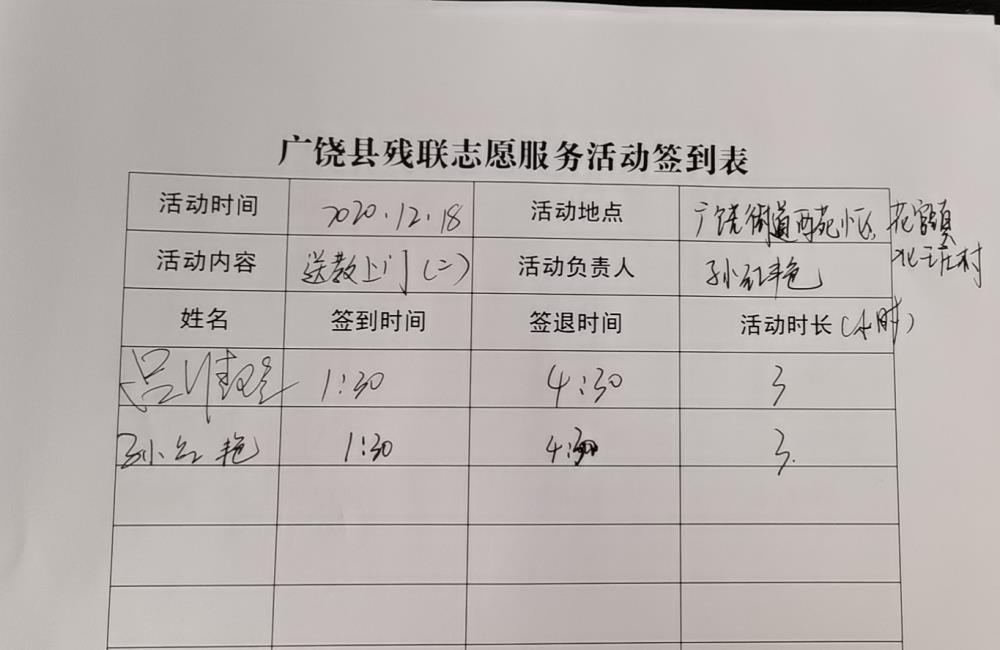 广饶县残联志愿服务活动签到表
活动时间 2020.12.18 活动地点 广饶街道西苑小区、花官镇
北王庄村
活动内容 送教上门(二) 活动负责人 孙红艳
姓名 签到时间 签退时间 活动时长(小时)
吕 1:30 4:30 3
孙红艳 1:30 4:30 3.